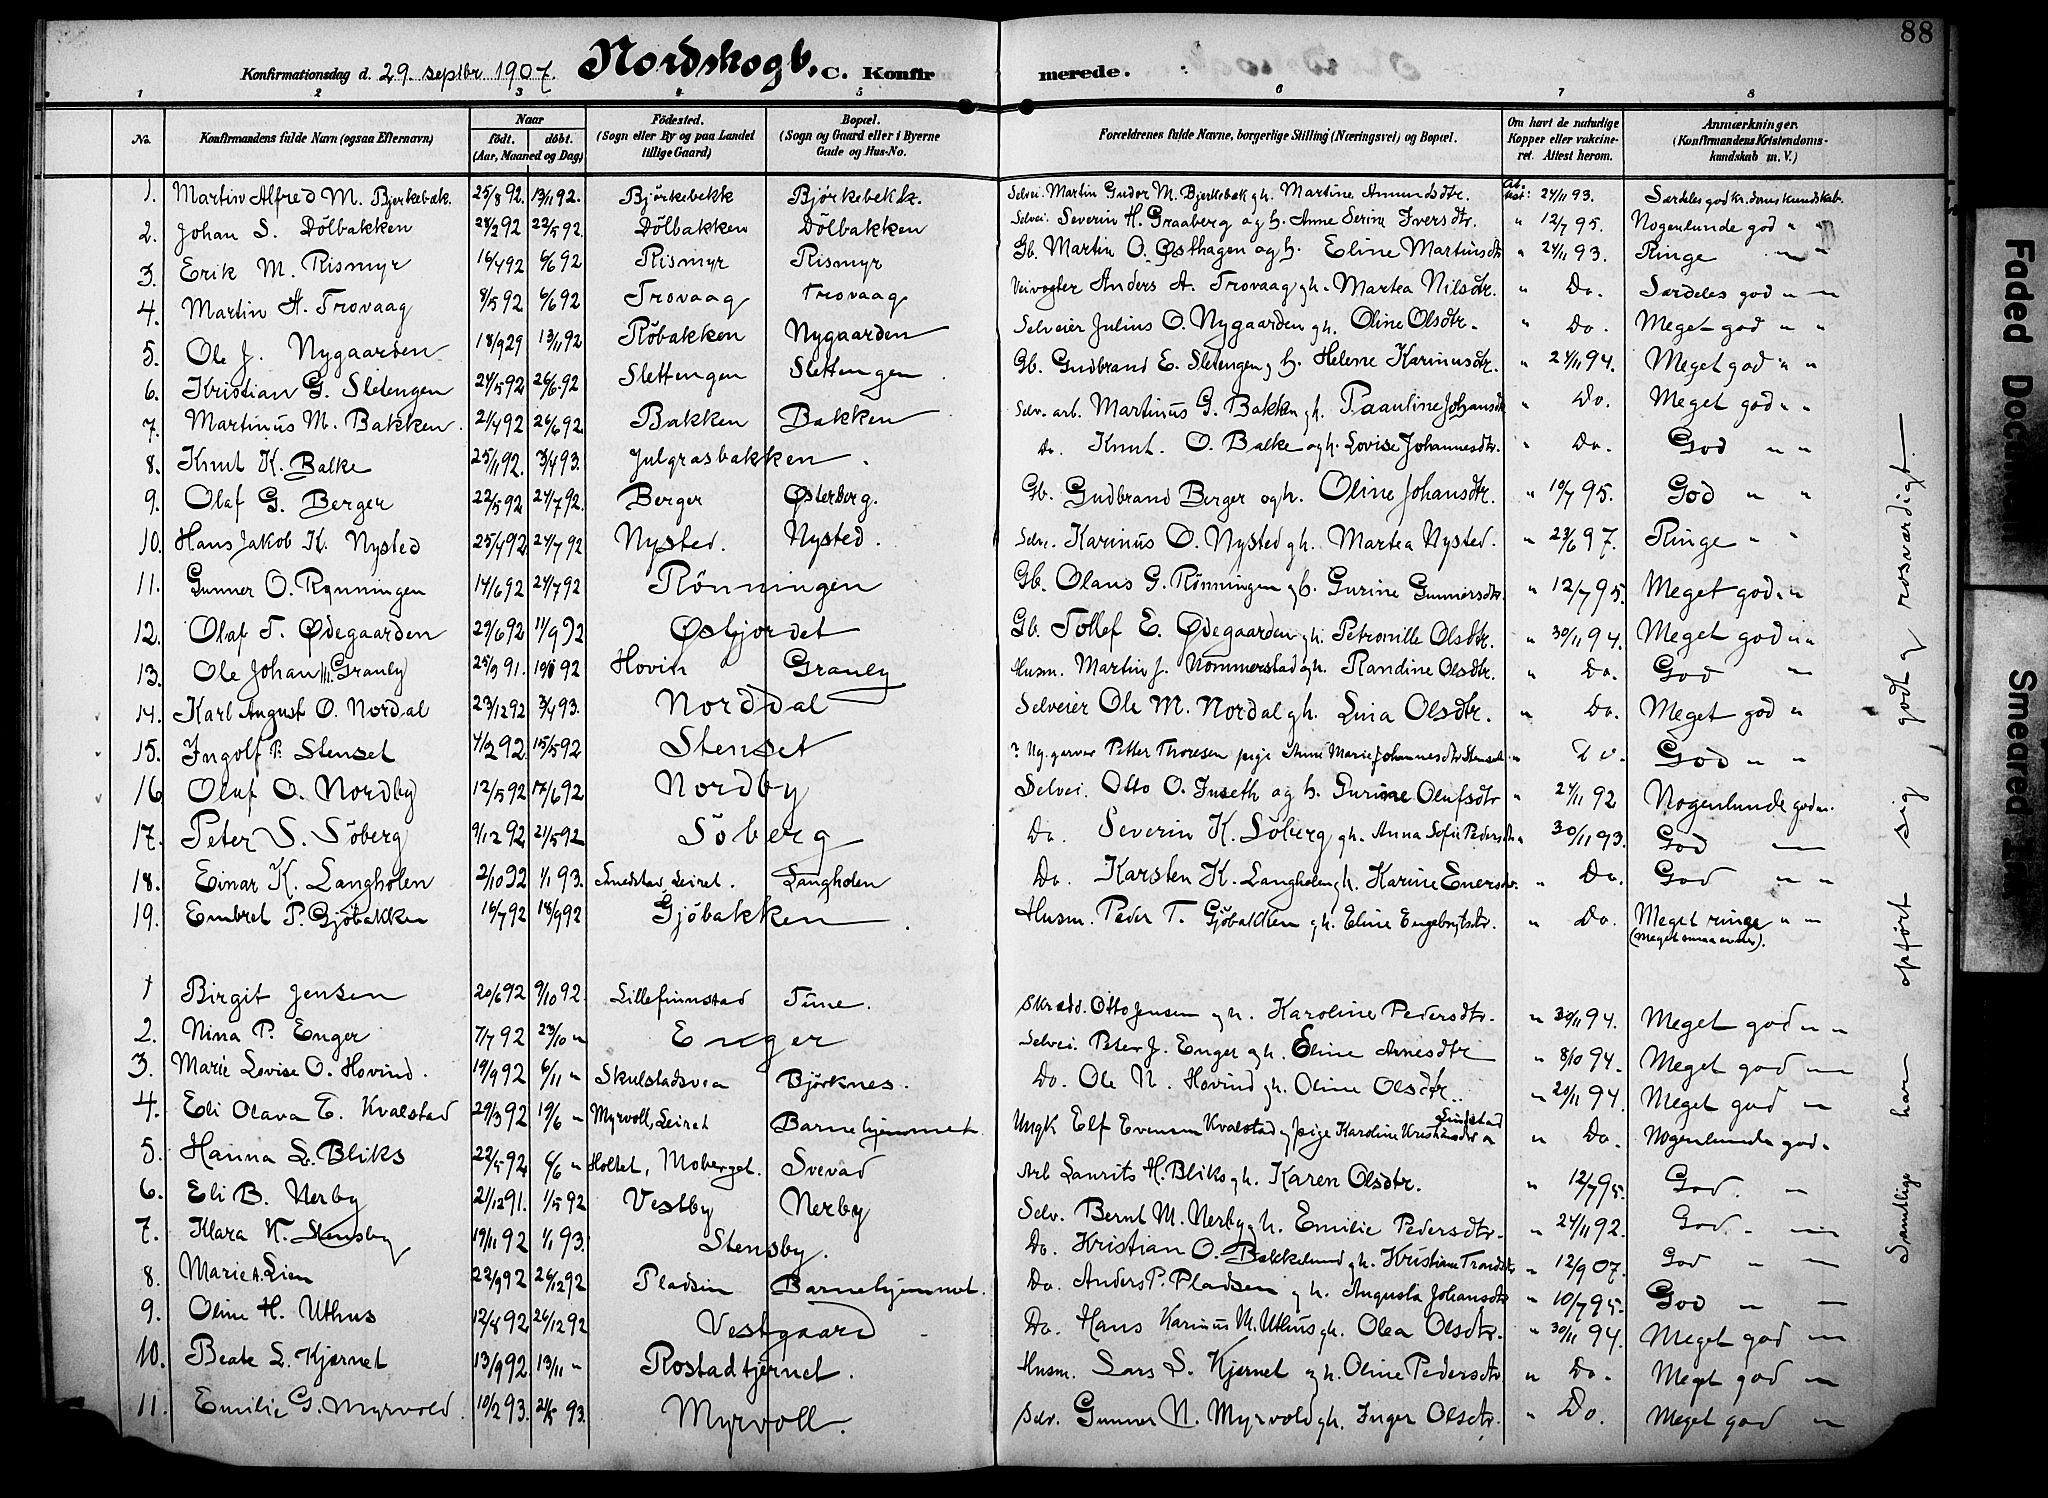 88
Konfirmationsdag d. 29. septbr. 1907. Nordskogb. C. Konfirmerede.
1 2 3 4 5 6 7 8
No. Konfirmandens fulde Navn (ogsaa Efternavn) Naar født. døbt. (Aar, Maaned og Dag) Fødested. (Sogn eller By og paa Landet tillige Gaard) Bopæl. (Sogn og Gaard eller i Byerne Gade og Hus-No. Forældrenes fulde Navne, borgerlige Stilling (Næringsvei) og Bopæl. Om havt de naturlige Kopper eller vakcineret. Attest herom. Anmærkninger. (Konfirmandens Kristendomskundskab m. V.)
1. Martin Alfred M. Bjerkebæk. 25/8 92. 13/11 92. Björkebekk Björkebekk. Selvei. Martin Gudor M. Bjerkebæk g h. Martine Amundsdtr. 24/11 93. Særdeles god kr.doms kundskab.
2. Johan S. Dölbakken 28/2 92 22/5 92. Dölbakken Dölbakken Selvei. Severin H. Graaberg og h. Anne Serine Iversdtr. " 12/7 95. Nogenlunde god " "
3. Erik M. Rismyr 16/4 92 6/6 92 Rismyr Rismyr Gb. Martin O. Østhagen og h. Eline Martinsdtr " 24/11 93. Ringe " "
4. Martin A. Trovaag 8/5 92 6/6 92 Trovaag Trovaag Veivogter Anders A. Trovaag g h. Martea Nilsdtr. " Do. Særdeles god " "
5. Ole J. Nygaarden 18/9 29 13/11 92 Röbakken Nygaarden Selveier Julius O. Nygaarden g h. Oline Olsdtr. " Do. Meget god " "
6. Kristian G. Sletengen 24/5 92 26/6 92 Slettengen Slettengen Gb. Gudbrand E. Sletengen g h. Helene Karinusdtr. " 24/11 94. Meget god " "
7. Martinus M. Bakken. 21/4 92 26/6 92. Bakken Bakken Selv. arb. Martinus G. Bakken g h. Paauline Johansdtr " Do. Meget god " "
8. Knut K. Balke 25/11 92. 3/4 93. Julgrasbakken. Do. Knut. O. Balke og h. Lovise Johannesdtr. " Do. God " "
9. Olaf G. Berger 22/5 92 24/7 92. Berger Østerberg. Gb. Gudbrand Berger og h. Oline Johansdtr. " 10/7 95. God " "
10. Hans Jakob K. Nysted 25/4 92 24/7 92 Nysted. Nysted. Selve. Karinus O. Nysted g h. Martea Nysted. " 23/6 97. Ringe " "
11. Gunner O. Rønningen 14/6 92 24/7 92 Rönningen Gb. Olaus G. Rönningen g h. Gurine Gunnersdtr. " 12/7 95. Meget god " "
12. Olaf T. Ødegaarden 29/6 92 11/9 92 Østjordet Gb. Tollef E. Ødegaarden g h. Petronille Olsdtr. " 30/11 94. Meget god " "
13. Ole Johan M. Granly 25/9 91. 92 Hovin Granly Husm. Martin J. Nommerstad g h. Randine Olsdtr. " Do. God "
14. Karl August O. Nordal 23/12 92 3/4 93. Norddal Selveier Ole M. Nordal g h. Lina Olsdtr. " Do. Meget god "
15. Ingolf P. Stenset 4/2 92. 15/5 92 Stenset ? Ug. garver Petter Thoresen pige Anne Marie Johannesdtr Stenset " Do. God " "
16 Oluf O. Nordby 12/5 92 17/6 92 Nordby Selvei. Otto O. Juseth og h. Gurine Olufsdtr " 24/11 92 Nogenlunde god "
17. Peter S. Söberg 9/12 92 21/5 92 Söberg Do. Severin K. Söberg g h. Anna Sofie Pedersdtr " 30/11 93. God "
18. Einar K. Langholen 2/10 92 1/1 93. Smedstad, Leiret. Langholen Do. Karsten K. Langholen g h. Karine Enersdtr. " Do. God " "
19. Embret P. Gjöbakken 16/7 92 18/9 92 Gjöbakken. Husm. Peder T. Gjöbakken g h. Eline Engebrigtsdtr. " Do. Meget ringe " "
(meget smaa evner).
1 Birgit Jensen 20/6 92 9/10 92. Lillefinnstad Tune. Skrædd. Otto Jensen g h. Karoline Pedersdtr. " 30/11 94. Meget god " "
2. Nina P. Enger 7/7 92 23/10 " Enger Selvei. Peter J. Enger g h. Eline Arnesdtr " 8/10 94. Meget god "
3. Marie Lovise O. Hovind. 19/9 92 6/11 " Skulstadsvea Björknes. Do. Ole N. Hovind g h. Oline Olsdtr. " 20/11 94. Meget god "
4. Eli Olava E. Kvalstad 29/3 92 19/6 " Myrvoll, Leiret Barnehjemmet Ungk Elf Evensen Kvalstad g pige Karoline Kristiansdtr " Do. Nogenlunde god.
5. Hanna L. Bliks 22/5 92 6/6 " Holtet, Moberget. Svevad Arb Laurits H. Bliks g h. Karen Olsdtr. " 12/7 95. God. "
6. Eli B. Nerby 21/12 91. 1/5 92 Vestby Nerby Selv. Bernt M. Nerby g h. Emilie Pedersdtr. " 24/11 92. God "
7. Klara K. Stensby 19/11 92 1/1 93. Stensby. Do. Kristian O. Bakkelund g h. Kristiane Trondsdtr " 12/9 07. God "
8. Marie A. Lien 22/9 92 26/12 92 Pladsen Barnehjemmet. Do. Anders P. Pladsen g h. Augusta Johansdtr " 10/7 95. God " "
9. Oline H. Uthus 12/8 92 26/12 92 Vestgaard Do. Hans Karinus M. Uthus g h. Olea Olsdtr. " 30/11 94. Meget god "
10. Beate L. Kjernet 13/9 92 13/11 " Rostadtjernet. Husm. Lars L. Kjernet g h. Oline Pedersdtr " Do. Meget god "
11. Emilie G. Myrvold. 10/2 93. 93. Myrvoll. Selv. Gunner N. Myrvold g h. Inger Olsdtr. " Do. Meget god "
Samtlige har opført sig godt og rosværdigt.
Faded Document
Smeared Ink